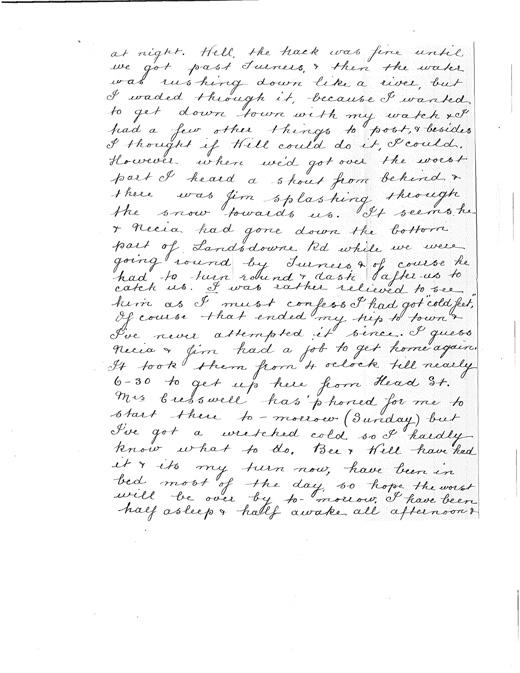 at night. Well, the track was fine until
we got past Turners, & then the water
was rushing down like a river, but
I waded through it, because I wanted
to get down town with my watch & I
had a few other things to post, & besides
I thought if Will could do it, I could.
However when we'd got over the worst
part I heard a shout from behind &
there was Jim splashing through
the snow towards us. It seems he
& Necia had gone down the bottom
part of Landsdowne Rd while we were
going round by Turners & of course he
had to turn round & dash after us to
catch us. I was rather relieved to see
him as I must confess I had got "cold feet".
Of course that ended my trip to town &
I've never attempted it since. I guess
Necia & Jim had a job to get home again.
It took them from 4 oclock till nearly
6-30 to get up here from Head St.
Mrs Cresswell has 'phoned for me to
start there to-morrow (Sunday) but
I've got a wretched cold so I hardly
know what to do. Bee & Will have had
it & its my turn now, have been in
bed most of the day, so hope the worst
will be over by to-morrow. I have been
half asleep & half awake all afternoon &